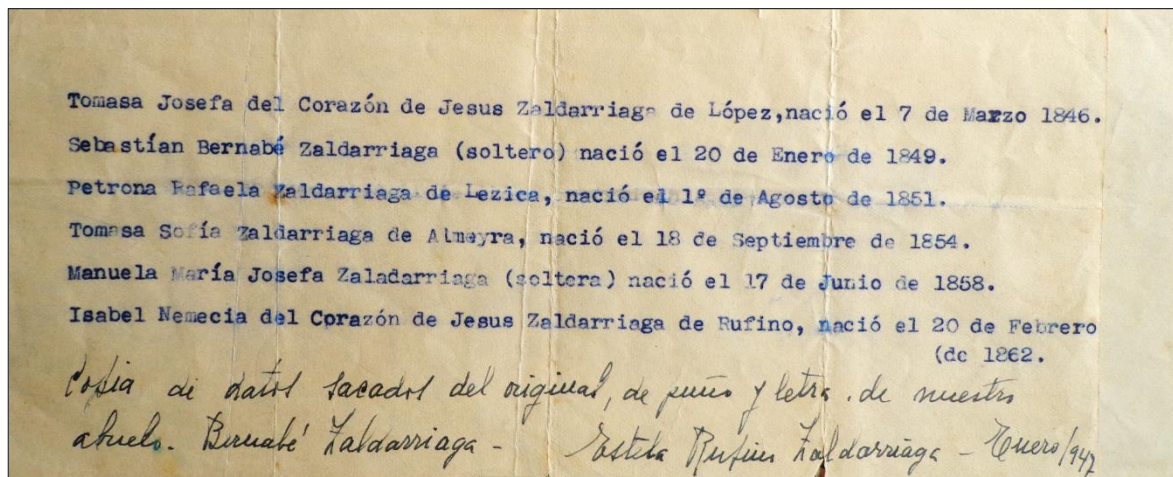 Tomasa Josefa del Corazón de Jesus Zaldarriaga de López,nació el 7 de Marzo 1846.
Sebastían Bernabé Zaldarriaga (soltero) nació el 20 de Enero de 1849.
Petrona Rafaela Zaldarriaga de Lezica, nació el 1º de Agosto de 1851.
Tomasa Sofía Zaldarriaga de Almeyra, nació el 18 de Septiembre de 1854.
Manuela María Josefa Zaladarriaga (soltera) nació el 17 de Junio de 1858.
Isabel Nemecia del Corazón de Jesus Zaldarriaga de Rufino, nació el 20 de Febrero
(de 1862.
Copia de datos sacados del original, de puño y letra. de nuestro
abuelo. Bernabé Zaldarriaga - Estela Rufino Zaldarriaga - Enero/947